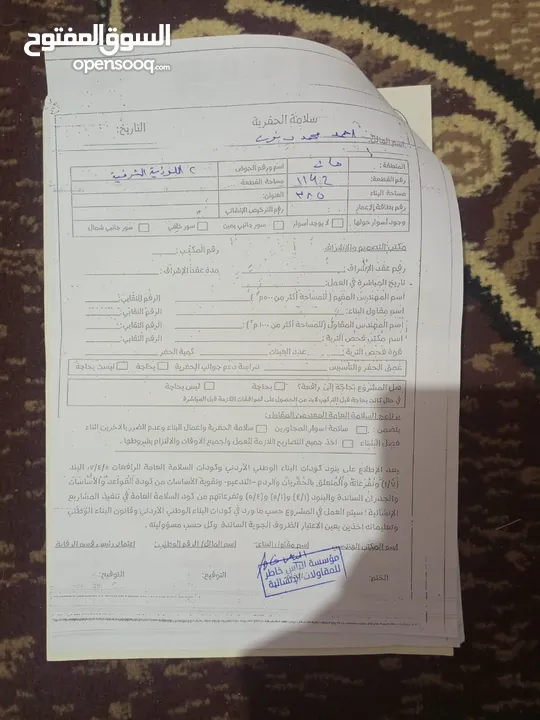 السوق المفتوح
opensooq.com
سلامة الحفرية
اسم المالك: احمد محمد التاريخ:
المنطقة: اسم ورقم الحوض
رقم القطعة: ١١٤٢ مساحة القطعة:
مساحة البناء ٣٨٥ العنوان:
رقم بطاقة الإعمار رقم الترخيص الإنشائي
وجود أسوار حولها: لا يوجد أسوار سور جانبي يمين سور خلفي سور جانبي شمال
مكتب التصميم والإشراف: رقم المكتب:
رقم عقد الإشراف: مدة عقد الإشراف:
تاريخ المباشرة في العمل:
اسم المهندس المقيم (للمساحة أكثر من الرقم النقابي:
اسم مقاول البناء: الرقم النقابي:
اسم المهندس المقاول (للمساحة أكثر من الرقم النقابي:
اسم مكتب فحص التربة:
قوة فحص التربة: عدد العينات كمية الحفر
عمق الحفر والتأسيس دراسة دعم جوانب الحفرية بحاجة ليست بحاجة
هل المشروع بحاجة إلى رافعة؟ بحاجة ليس بحاجة
في حال كانت بحاجة قبل التركيب لابد من الحصول على الموافقات اللازمة قبل المباشرة
برنامج السلامة العامة المعد من المقاول:
يتضمن: سلامة اسوار المجاورين سلامة الحفرية واعمال البناء وعدم الضرر بالاخرين اثناء
البناء اخذ جميع التصاريح اللازمة للعمل ولجميع الاوقات والالتزام بشروطها.
بعد الإطلاع على بنود كودات البناء الوطني الأردني وكودات السلامة العامة البند
والمتعلق بالحفريات والردم - التدعيم - وتقوية الأساسات من كودة القواعد والأساسات
والجدران الساندة والبنود وتفرعاتهم من كود السلامة العامة في تنفيذ المشاريع
الإنشائية؛ سيتم العمل في المشروع حسب ما ورد في كودات البناء الوطني الأردني وقانون البناء الوطني
وتعليماته اخذين بعين الاعتبار الظروف الجوية السائدة وكل حسب مسؤوليته.
اسم المكتب اسم مقاول البناء: اسم المالك/ الرقم الوطني: اعتماد رئيس قسم الرقابة
الختم: التوقيع: التوقيع:
مؤسسة خاطر
للمقاولات الإنشائية